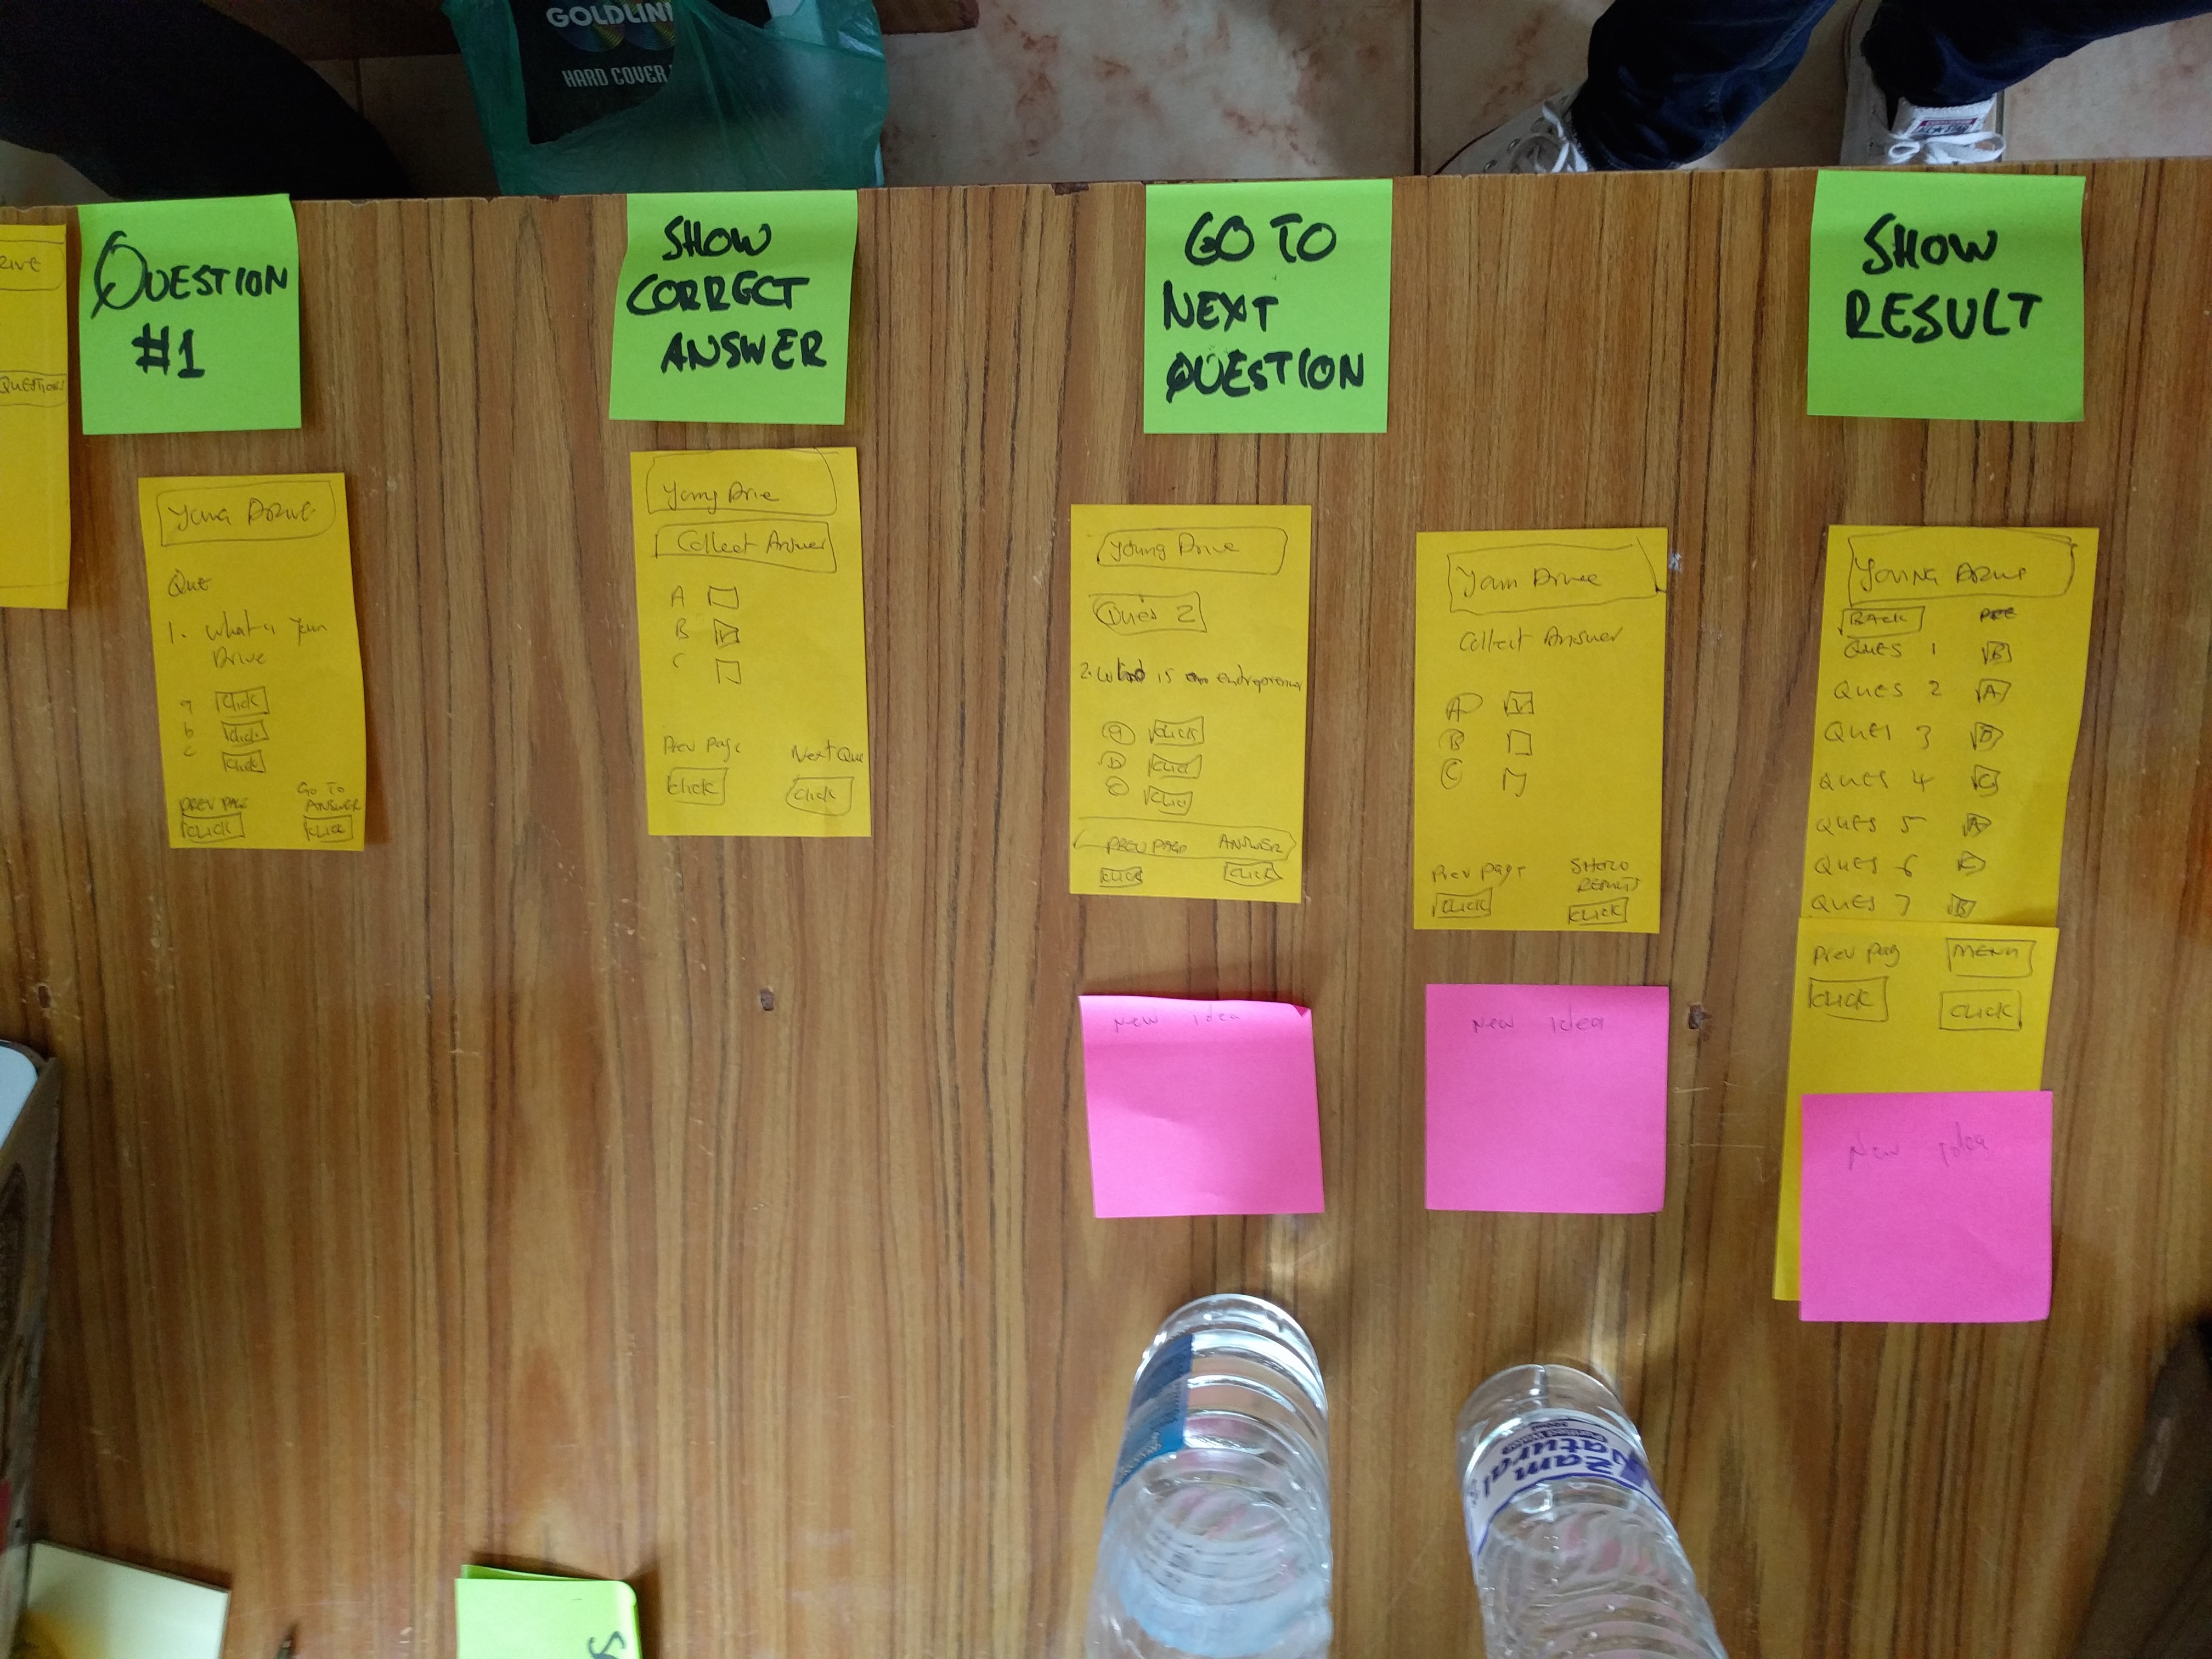 GOLDLINE
HARD COVER
RIVE
QUESTIONS
QUESTION
#1
Young Drive
Que
1.
Drive
a click
b click
c click
PREV PAGE
GO TO
ANSWER
CLICK
CLICK
SHOW
CORRECT
ANSWER
Young Drive
Collect Answer
A
B
C
Prev Page Next Que
Click Click
GO TO
NEXT
QUESTION
Young Drive
Ques 2
2. What is an entreprenuer
click
click
click
PREV PAGE ANSWER
CLICK CLICK
New idea
Collect Answer
A
B
C
Prev Page
SHOW
RESULT
CLICK CLICK
New idea
SHOW
RESULT
YOUNG DRIVE
BACK
QUES 1 B
QUES 2 A
QUES 3
QUES 4 C
QUES 5 A
QUES 6
QUES 7 B
Prev Pag MENU
CLICK CLICK
New idea
Zam
Natural